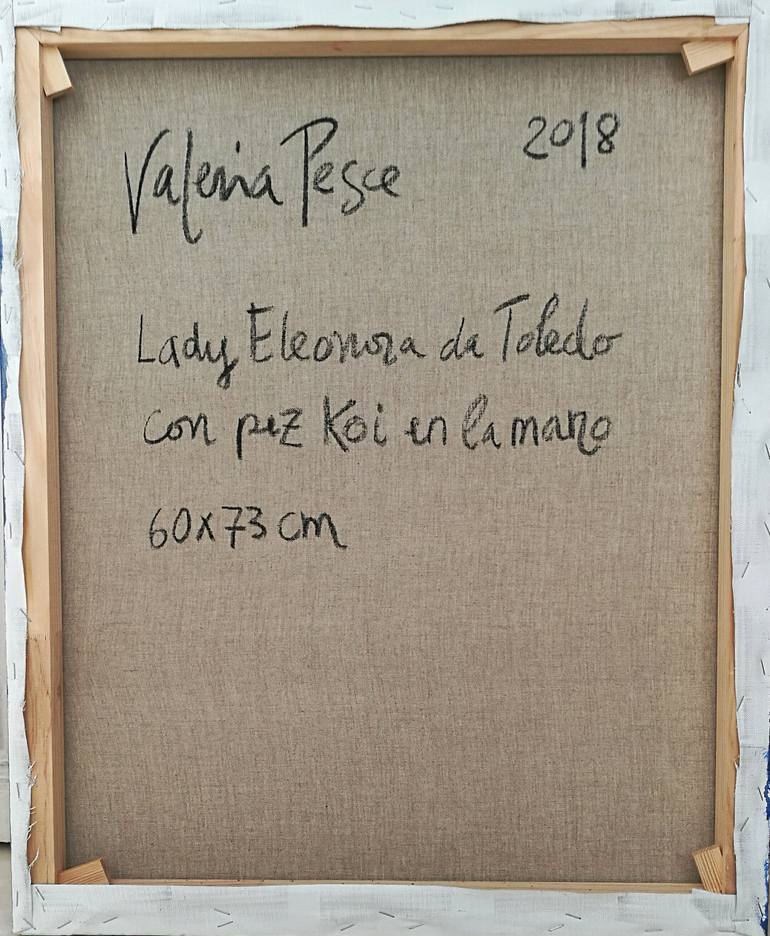 Valeria Pesce 2018
Lady Eleonora da Toledo
con pez Koi en la mano
60x73 cm